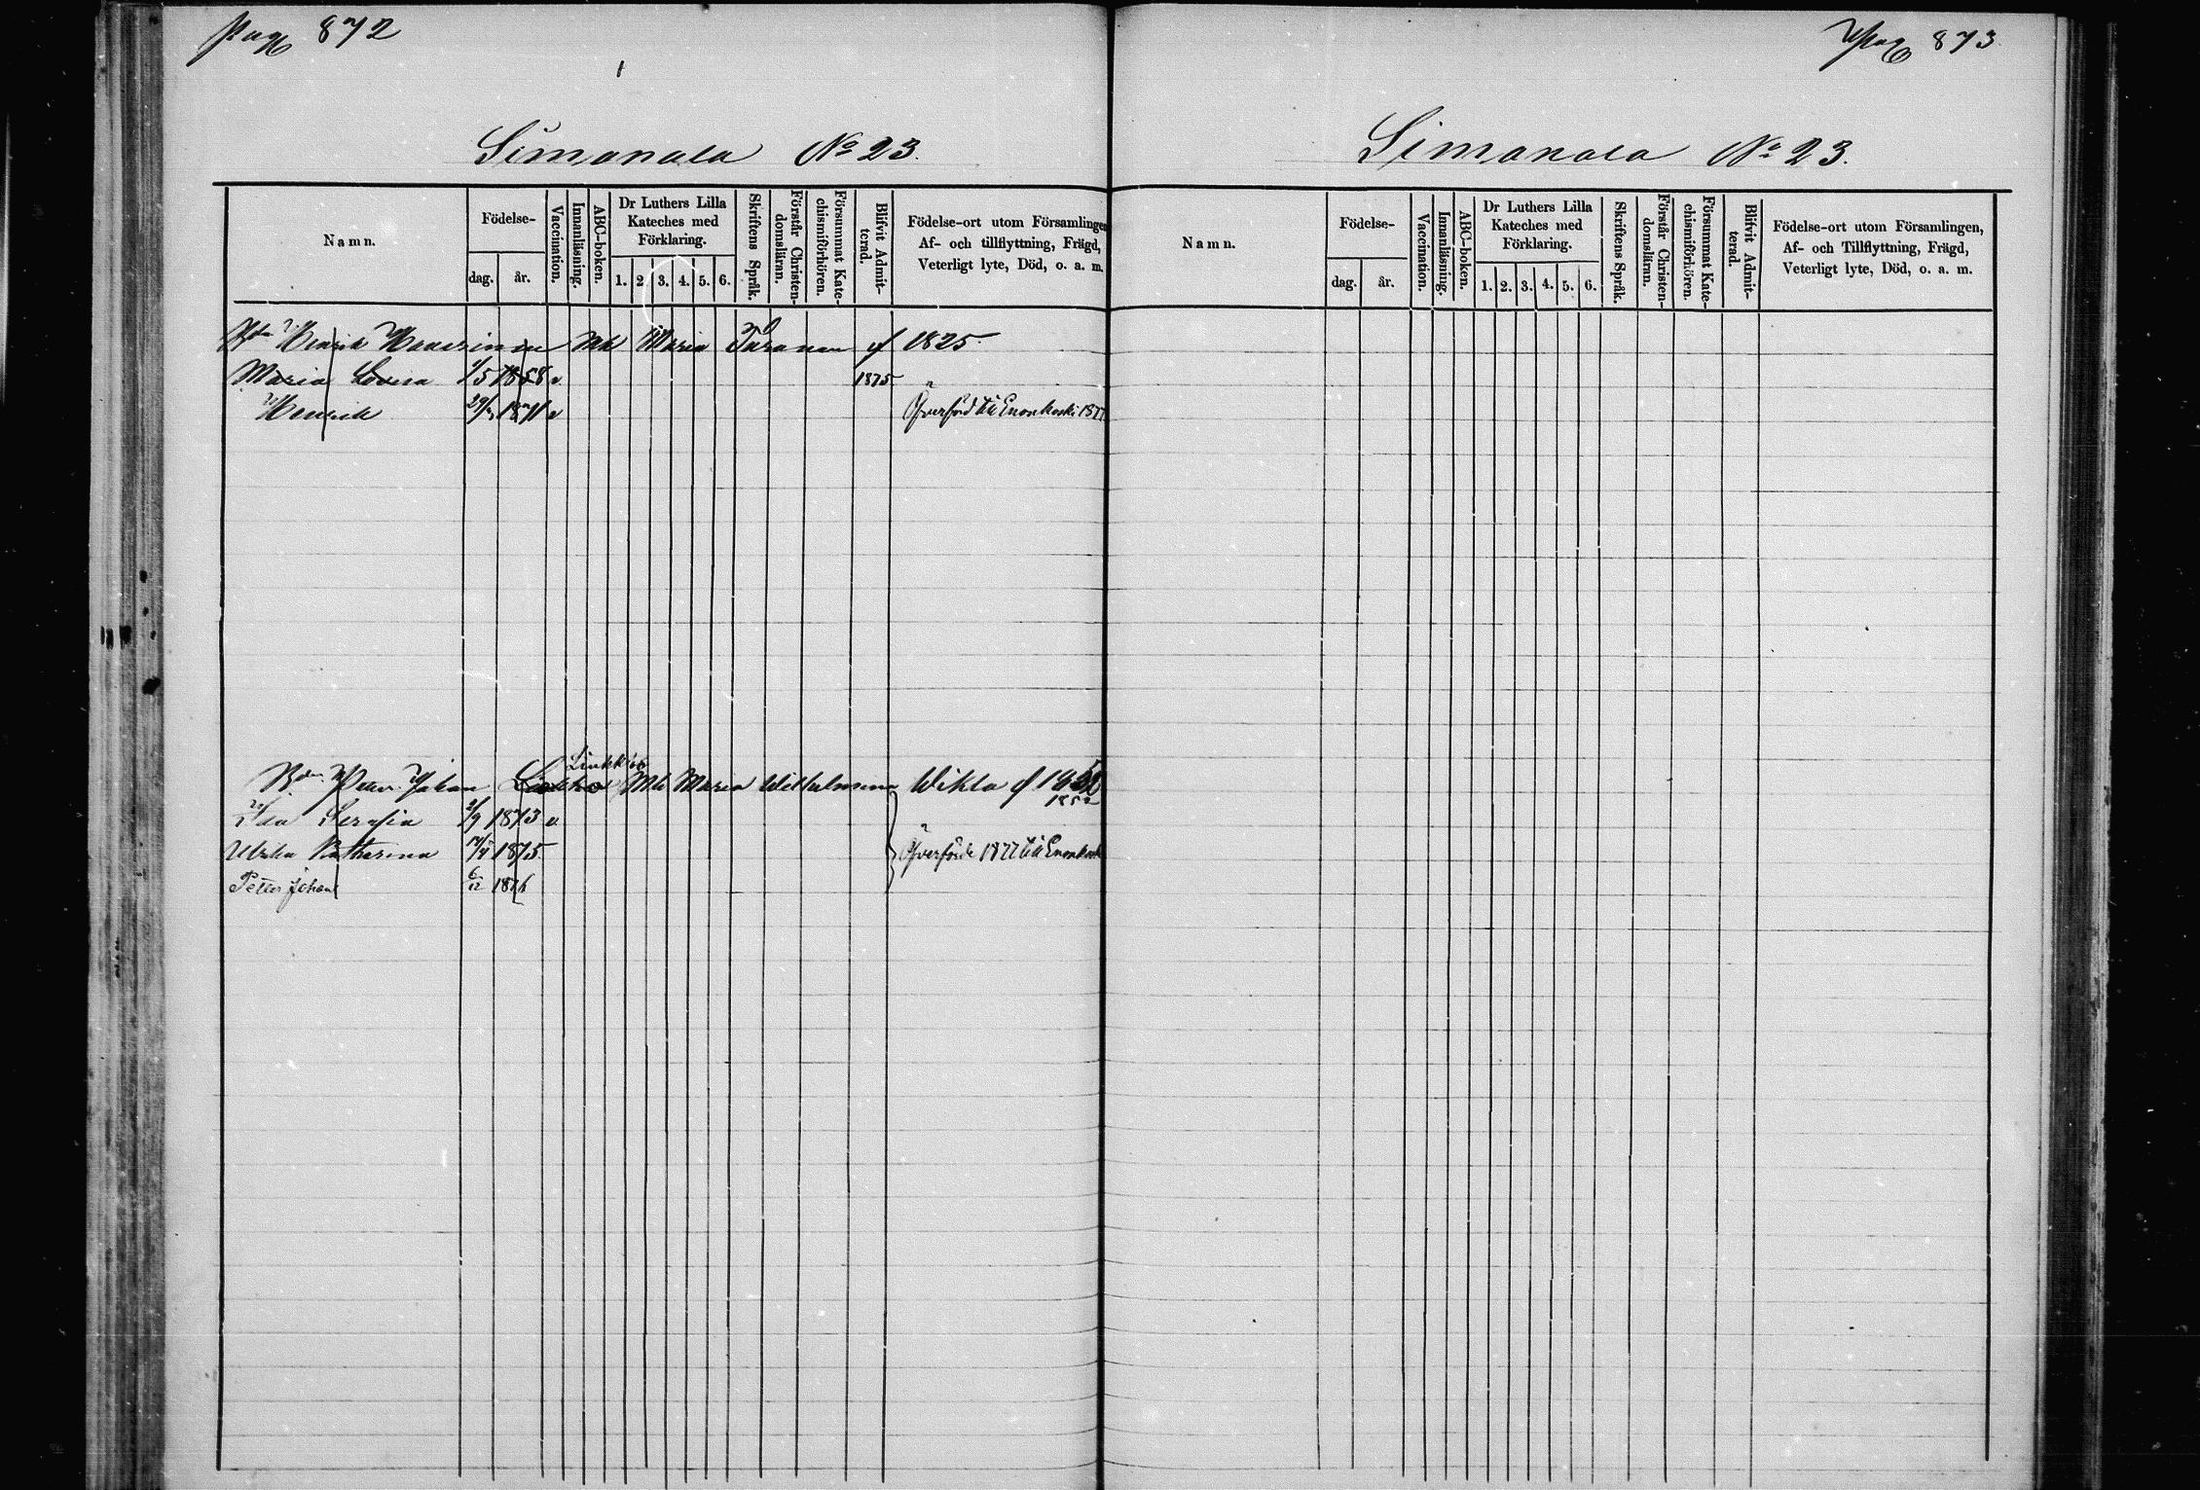 Pag 872
Simanala No 23.
Namn.
Födelse-
dag. år.
Vaccination.
Innanläsning.
ABC-boken.
Dr Luthers Lilla
Kateches med
Förklaring.
1. 2 3. 4. 5. 6.
Skriftens Språk.
Förstår Christen-
domsläran.
Försummat Kate-
chismiförhören.
Blifvit Admit-
terad.
Födelse-ort utom Församlingen
Af- och tillflyttning, Frägd,
Veterligt lyte, Död, o. a. m.
Henrik Mh Maria f 1825
Maria Lovisa 1/5 1858 v 1875
Henrik 1871 v Öfverförd till Enonkoski 1877
Peter Johan Mh Maria Wilhelmina Wikla f
1852
Ida Serafia 2/9 1873 v
Ulrika Katharina 1875 Öfverförde 1877 till Enonkoski
Petter Johan 6/12 1876
Pag 873
Simanala No 23.
Namn.
Födelse-
dag. år.
Vaccination.
Innanläsning.
ABC-boken.
Dr Luthers Lilla
Kateches med
Förklaring.
1. 2. 3. 4. 5. 6.
Skriftens Språk.
Förstår Christen-
domsläran.
Försummat Kate-
chismiförhören.
Blifvit Admit-
terad.
Födelse-ort utom Församlingen,
Af- och Tillflyttning, Frägd,
Veterligt lyte, Död, o. a. m.